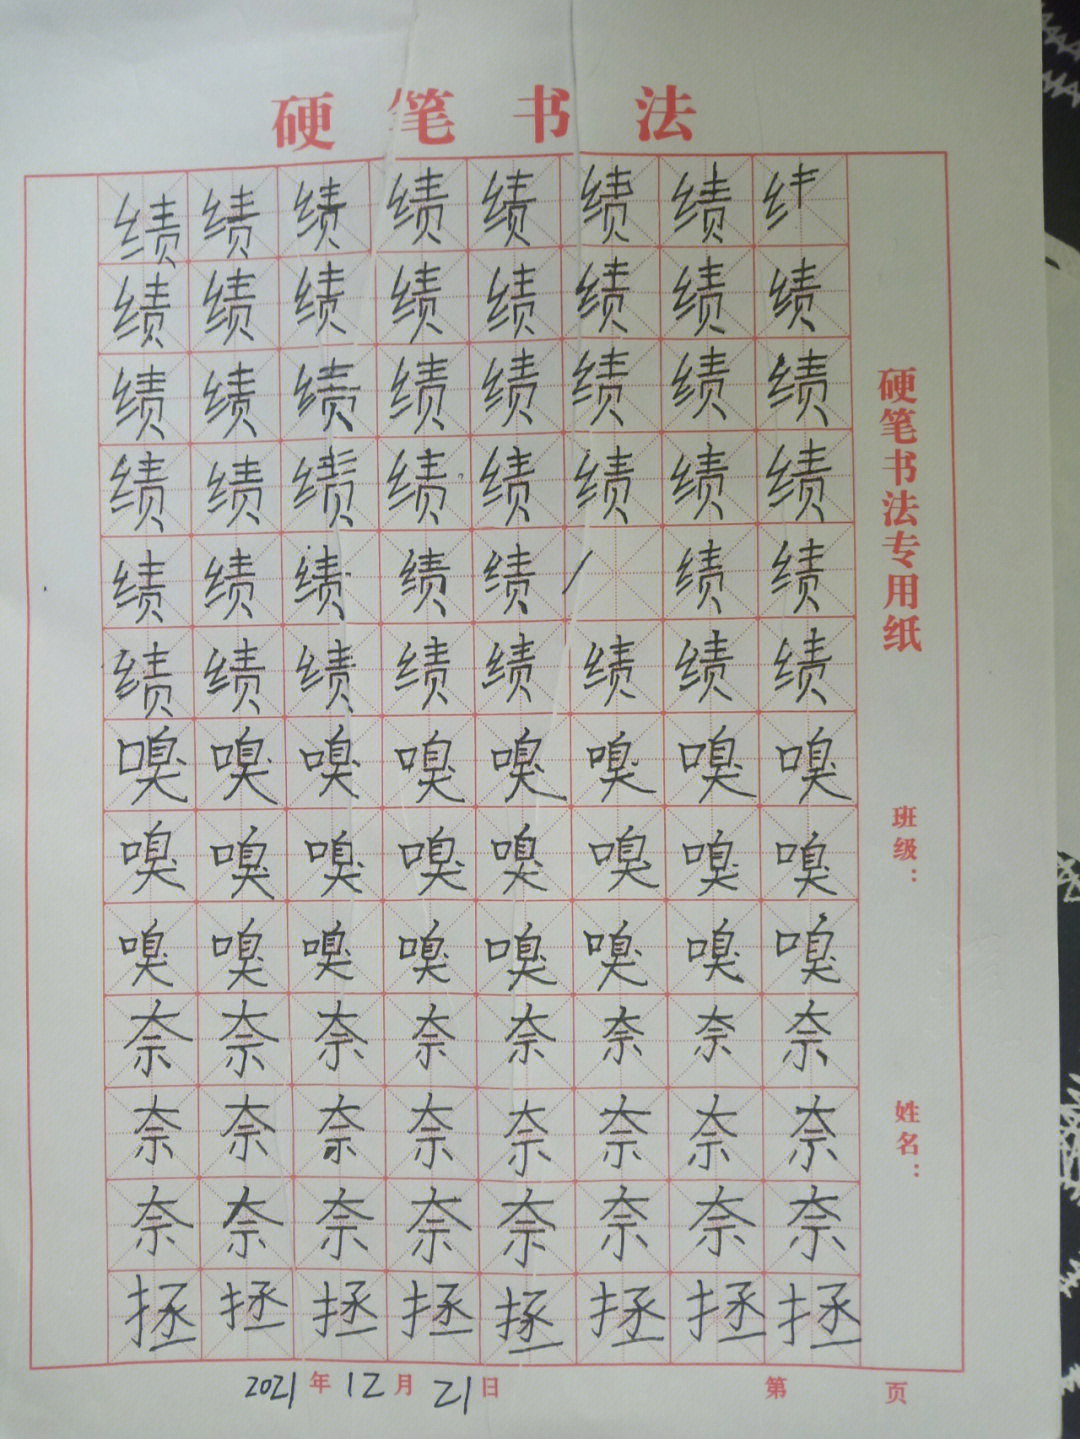 硬笔书法
绩绩绩绩绩绩绩
绩绩绩绩绩绩绩绩
绩绩绩绩绩绩绩绩
绩绩绩绩绩绩绩绩
绩绩绩绩绩绩绩
绩绩绩绩绩绩绩绩
嗅嗅嗅嗅嗅嗅嗅嗅
嗅嗅嗅嗅嗅嗅嗅嗅
嗅嗅嗅嗅嗅嗅嗅嗅
奈奈奈奈奈奈奈奈
奈奈奈奈奈奈奈奈
奈奈奈奈奈奈奈奈
拯拯拯拯拯拯拯拯
硬笔书法专用纸
班级：
姓名：
2021年12月21日
第 页